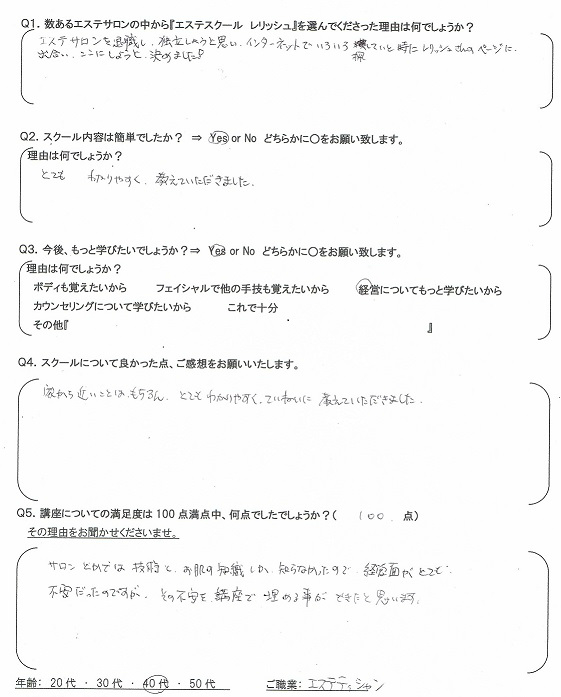 Q1. 数あるエステサロンの中から『エステスクール レリッシュ』を選んでくださった理由は何でしょうか？
エステサロンを退職し、独立しようと思い、インターネットでいろいろ探していた時にレリッシュさんのページに
出合い、ここにしようと、決めました!
Q2. スクール内容は簡単でしたか？ ⇒ Yes or No どちらかに〇をお願い致します。
理由は何でしょうか？
とても わかりやすく、教えていただきました。
Q3. 今後、もっと学びたいでしょうか？⇒ Yes or No どちらかに〇をお願い致します。
理由は何でしょうか？
ボディも覚えたいから フェイシャルで他の手技も覚えたいから 経営についてもっと学びたいから
カウンセリングについて学びたいから これで十分
その他『 』
Q4. スクールについて良かった点、ご感想をお願いいたします。
家から近いことは、もちろん、とてもわかりやすく、ていねいに 教えていただきました。
Q5. 講座についての満足度は 100 点満点中、何点でしたでしょうか？( 100 点)
その理由をお聞かせくださいませ。
サロンとかでは 技術と、お肌の知識しか、知らなかったので 経営面がとても
不安だったのですが、その不安を、講座で 埋める事が できたと思います。
年齢： 20 代 ・ 30 代 ・ 40 代 ・ 50 代 ご職業： エステティシャン